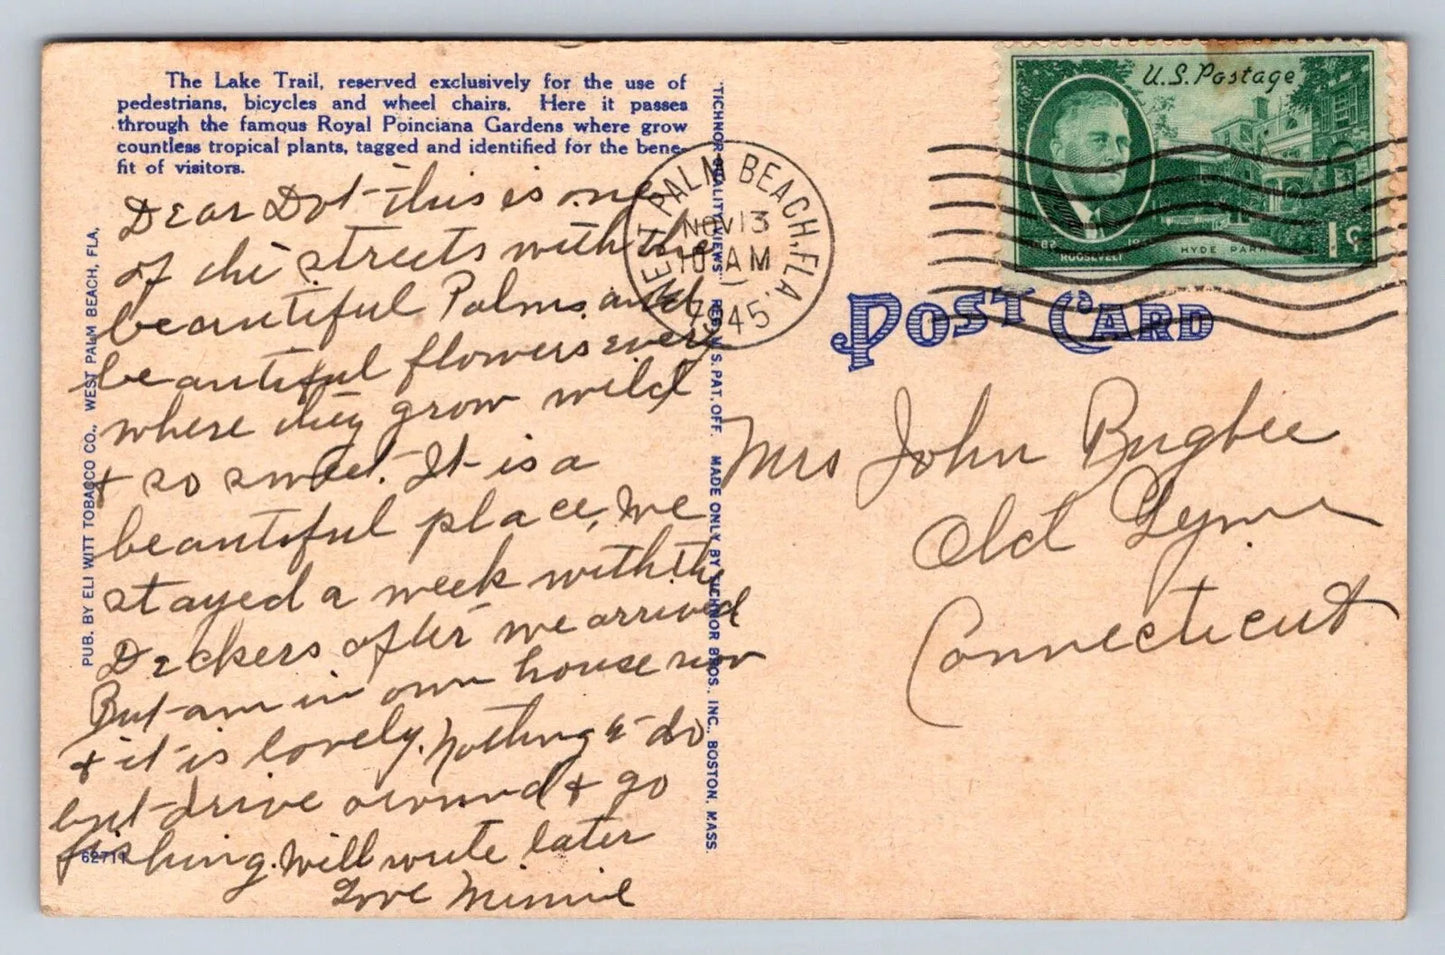 The Lake Trail, reserved exclusively for the use of
pedestrians, bicycles and wheel chairs. Here it passes
through the famous Royal Poinciana Gardens where grow
countless tropical plants, tagged and identified for the bene-
fit of visitors.
Dear Dot - this is one
of the streets with the
beautiful Palms and
beautiful flowers every
where they grow wild
+ so sweet. It is a
beautiful place, We
stayed a week with the
Deckers after we arrived
But am in own house now
+ it is lovely. Nothing to do
but drive around + go
fishing. Will write later
Love Minnie
62711
PUB. BY ELI WITT TOBACCO CO., WEST PALM BEACH, FLA.
TICHNOR QUALITY VIEWS REG. U. S. PAT. OFF. MADE ONLY BY TICHNOR BROS., INC., BOSTON, MASS.
WEST PALM BEACH, FLA.
NOV 13
10 AM
1945
U.S. Postage
ROOSEVELT
HYDE PARK
1¢
POST CARD
Mrs John Bugbee
Old Lyme
Connecticut